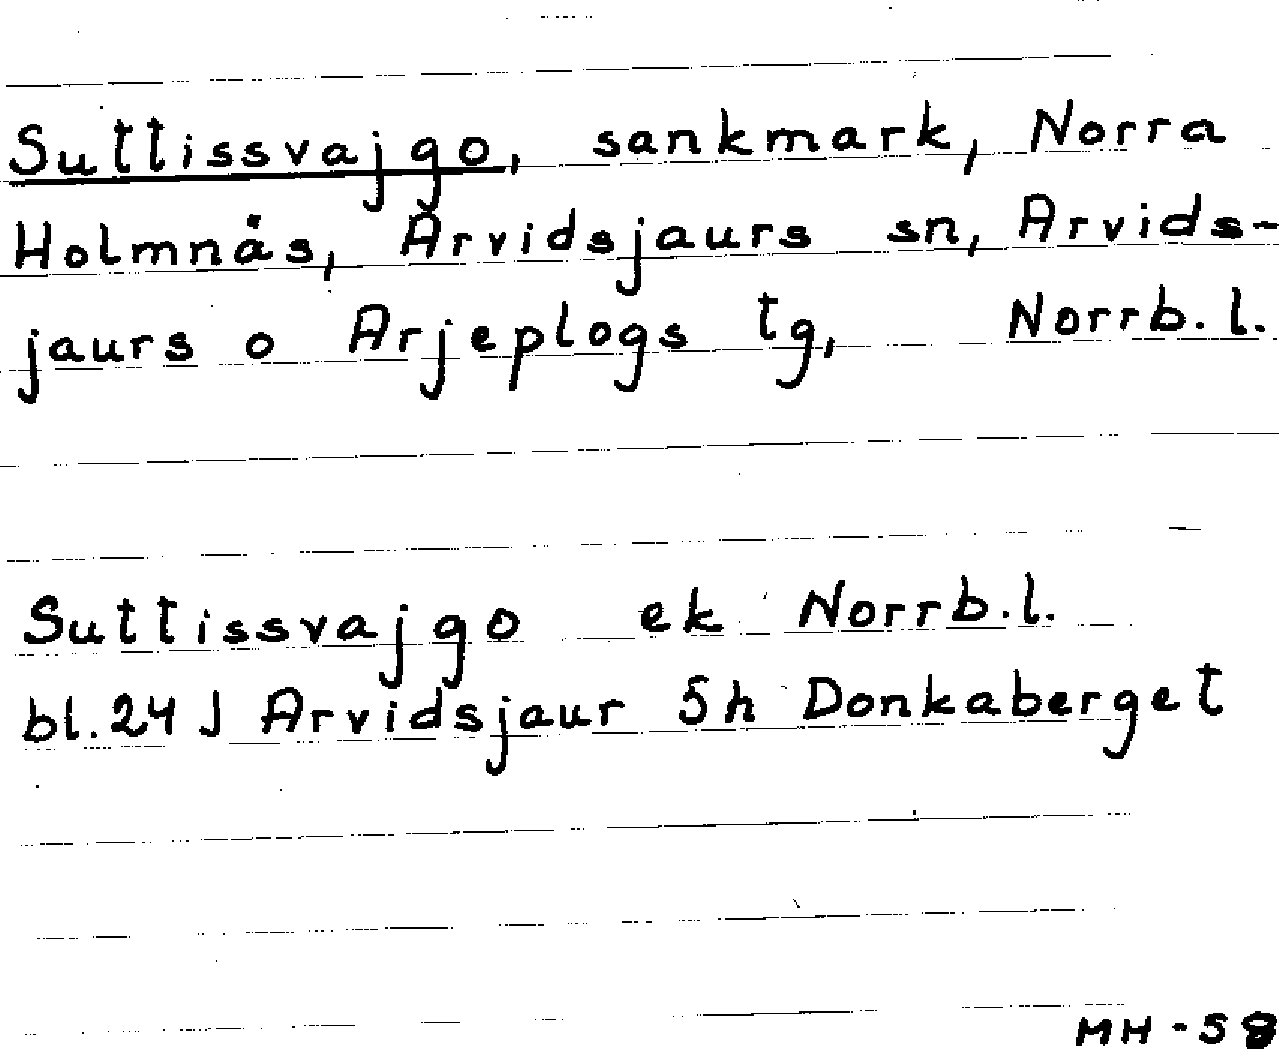 Suttissvajgo, sankmark, Norra
Holmnäs, Arvidsjaurs sn, Arvids-
jaurs o Arjeplogs tg, Norrb.l.
Suttissvajgo ek Norrb.l.
bl. 24 J Arvidsjaur 5h Donkaberget
MH-58